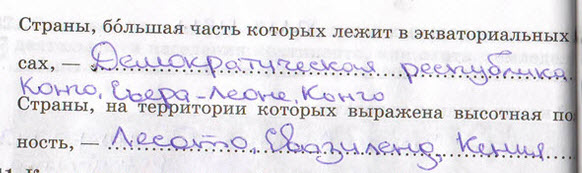 Страны, бо́льшая часть которых лежит в экваториальных
сах, — Демократическая республика
Конго, Сьера-Леоне, Конго
Страны, на территории которых выражена высотная по
ность, — Лесото, Свазиленд, Кения